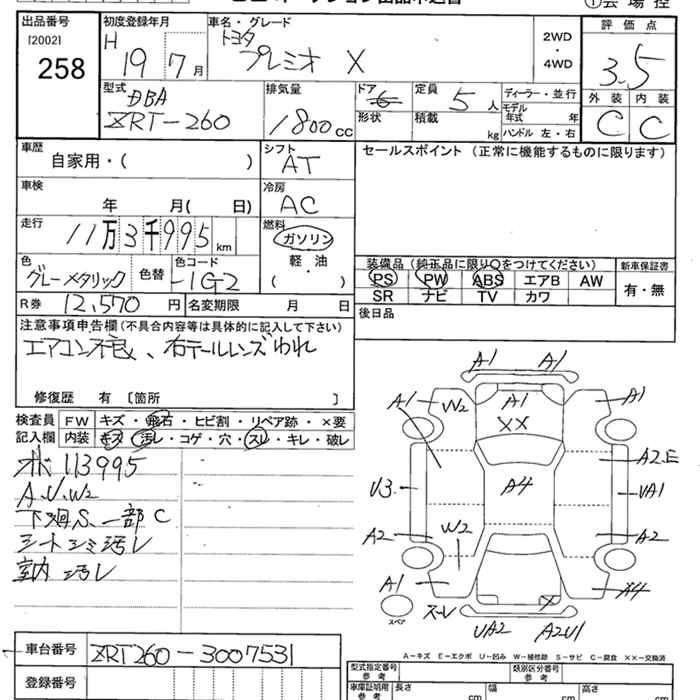 出品番号
[2002]
258
初度登録年月
H 19 7月
車名・グレード
トヨタ
プレミオ X
2WD
・
4WD
評価点
3.5
外装 内装
C C
型式
DBA
ZRT-260
排気量
1800cc
ドア
形状
定員
5人
積載
kg
ディーラー・並行
モデル年式 年
ハンドル 左・右
車歴
自家用・( )
シフト
AT
セールスポイント (正常に機能するものに限ります)
車検
年 月( 日)
冷房
AC
走行
11万3千995km
燃料
ガソリン
軽・油
( )
色
グレーメタリック
色替
色コード
1G2
装備品 (純正品に限り○をつけてください)
PS PW ABS エアB AW
SR ナビ TV カワ
新車保証書
有・無
R券 12,570円
名変期限 月 日
後日品
注意事項申告欄 (不具合内容等は具体的に記入して下さい)
右テールレンズわれ
修復歴 有 〔箇所 〕
検査員記入欄
FW キズ・飛石・ヒビ割・リペア跡・×要
内装 キズ・汚レ・コゲ・穴・スレ・キレ・破レ
113995
A.U.W2
下廻S.一部C
シートシミ汚レ
室内汚レ
A1 A1
A1 W2 A1 A1
XX
A2.E
U3 A4 UA1
A2 W2 A2
A1 A4
スペア
スーレ X
UA2 A2U1
A-キズ E-エクボ U-凹み W-補修跡 S-サビ C-腐食 XX-交換済
車台番号 ZRT260-3007531
登録番号
型式指定番号 参考
類別区分番号 参考
車庫証明用 参考
長さ cm
幅 cm
高さ cm